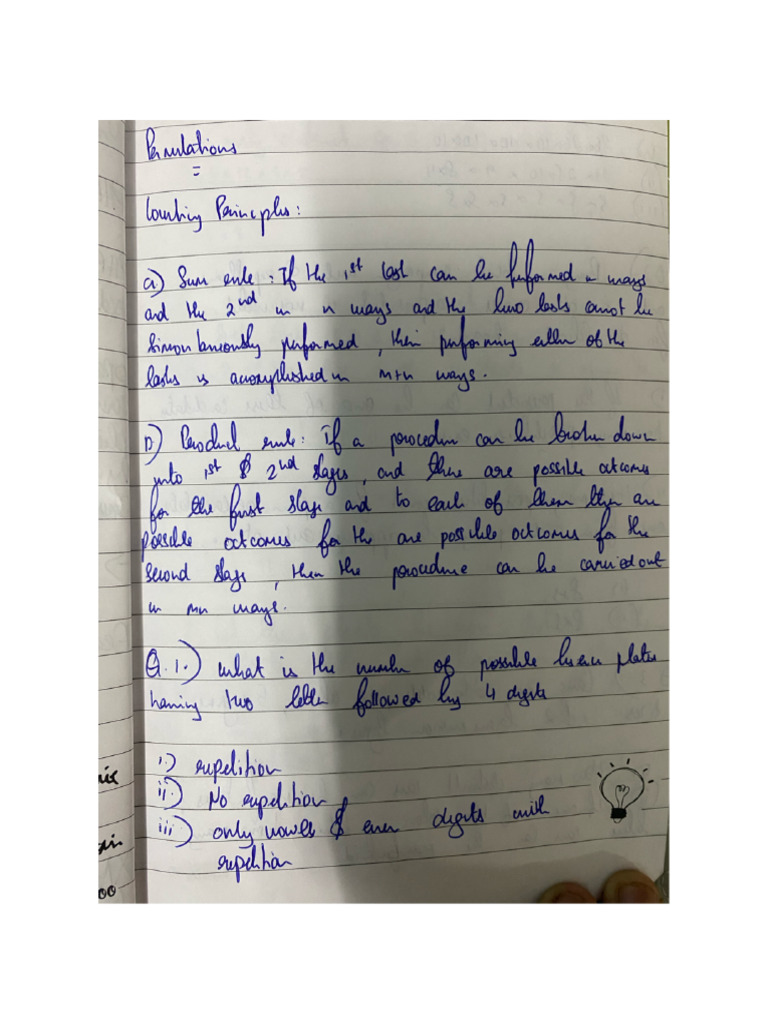 Permutations
=
Counting Principles:
a) Sum rule: If the 1st task can be performed in m ways
and the 2nd in n ways and the two tasks cannot be
simultaneously performed, then performing either of the
tasks is accomplished in m+n ways.
b) Product rule: If a procedure can be broken down
into 1st & 2nd stages, and there are possible outcomes
for the first stage and to each of them there are
possible outcomes for the are possible outcomes for the
second stage, then the procedure can be carried out
in mn ways.
Q.1.) what is the number of possible license plates
having two letter followed by 4 digits
i.) repetition
ii.) No repetition
iii) only vowels & even digits with
repetition
00